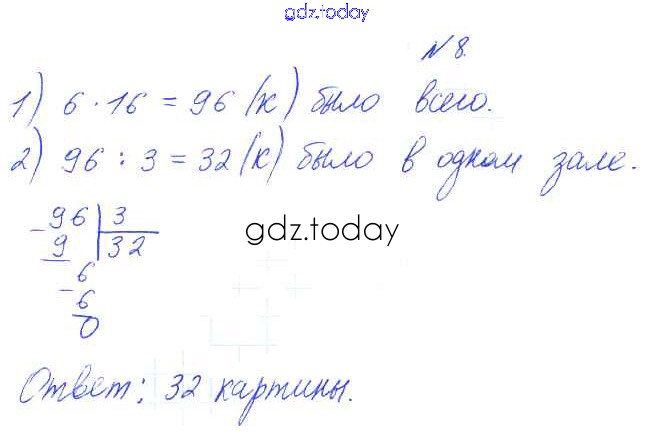 gdz.today
№ 8.
1) 6 · 16 = 96 (к) было всего.
2) 96 : 3 = 32 (к) было в одном зале.
- 96 | 3
9 | 32
gdz.today
- 6
6
0
Ответ: 32 картины.